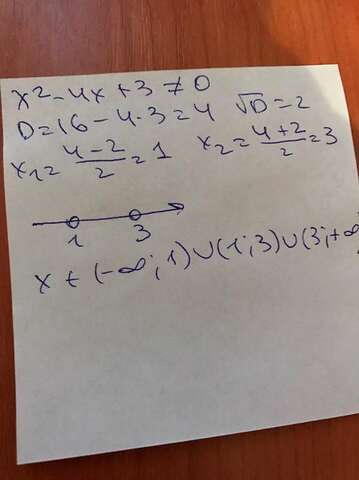 x² - 4x + 3 ≠ 0
D = 16 - 4·3 = 4 √D = 2
x₁ = (4-2)/2 = 1 x₂ = (4+2)/2 = 3
1 3
x ∈ (-∞; 1) ∪ (1; 3) ∪ (3; +∞